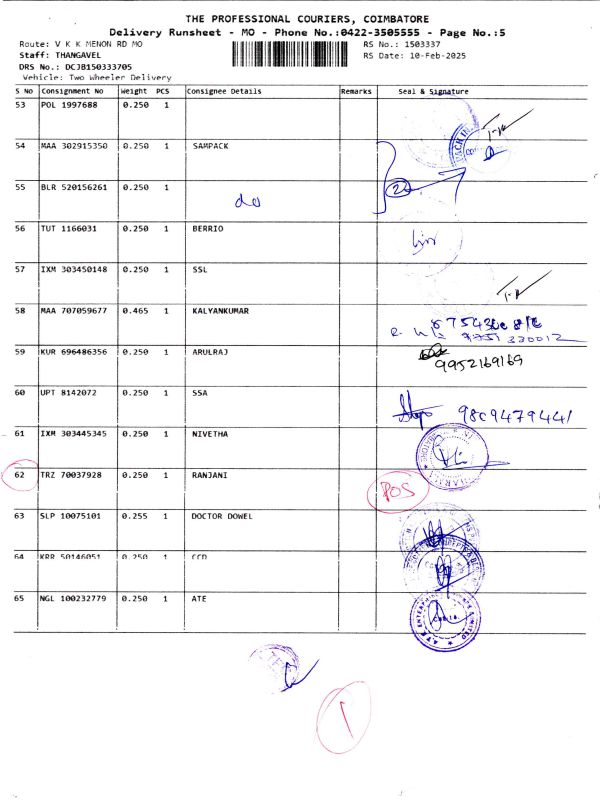 THE PROFESSIONAL COURIERS, COIMBATORE
Delivery Runsheet - MO - Phone No.:0422-3505555 - Page No.:5
Route: V K K MENON RD MO RS No.: 1503337
Staff: THANGAVEL RS Date: 10-Feb-2025
DRS No.: DCJB150333705
Vehicle: Two Wheeler Delivery
S No Consignment No Weight PCS Consignee Details Remarks Seal & Signature
53 POL 1997688 0.250 1
54 MAA 302915350 0.250 1 SAMPACK
55 BLR 520156261 0.250 1
do
56 TUT 1166031 0.250 1 BERRIO
57 IXM 303450148 0.250 1 SSL
58 MAA 707059677 0.465 1 KALYANKUMAR
59 KUR 696486356 0.250 1 ARULRAJ
9952169169
60 UPT 8142072 0.250 1 SSA
9809479441
61 IXM 303445345 0.250 1 NIVETHA
62 TRZ 70037928 0.250 1 RANJANI POS
63 SLP 10075101 0.255 1 DOCTOR DOWEL
64 KRR 50146051 0.250 1 CCD
65 NGL 100232779 0.250 1 ATE
1